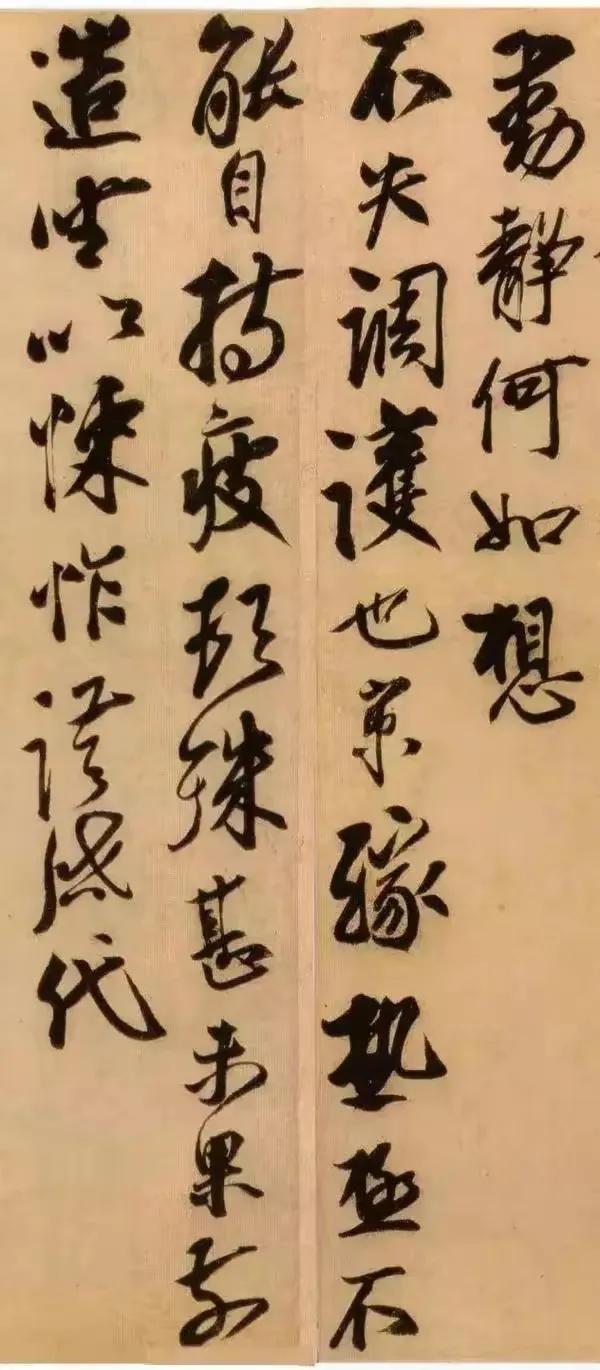 動靜何如想
不失調護也某緣熱極不
能自持疲頓殊甚未果前
造坐以悚怍謹代